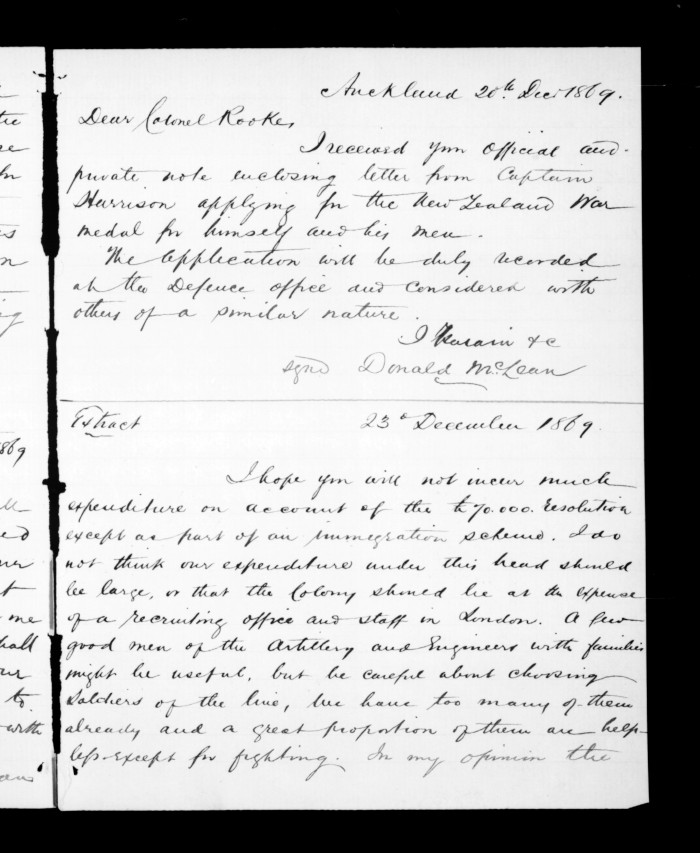 Auckland 20th Decr 1869.
Dear Colonel Rookes,
I received your official and
private note enclosing letter from Captain
Harrison applying for the New Zealand War
medal for himself and his men.
The application will be duly recorded
at the Defence office and considered with
others of a similar nature.
I Remain &c
sgnd Donald McLean
Extract 23d December 1869.
I hope you will not incur much
expenditure on account of the £70.000. resolution
except as part of an immigration scheme. I do
not think our expenditure under this head should
be large, or that the Colony should be at the expense
of a recruiting office and staff in London. A few
good men of the Artillery and Engineers with families
might be useful, but be careful about choosing
Soldiers of the line, we have too many of them
already and a great proportion of them are help-
less except for fighting. In my opinion the
869
me
hall
to
with